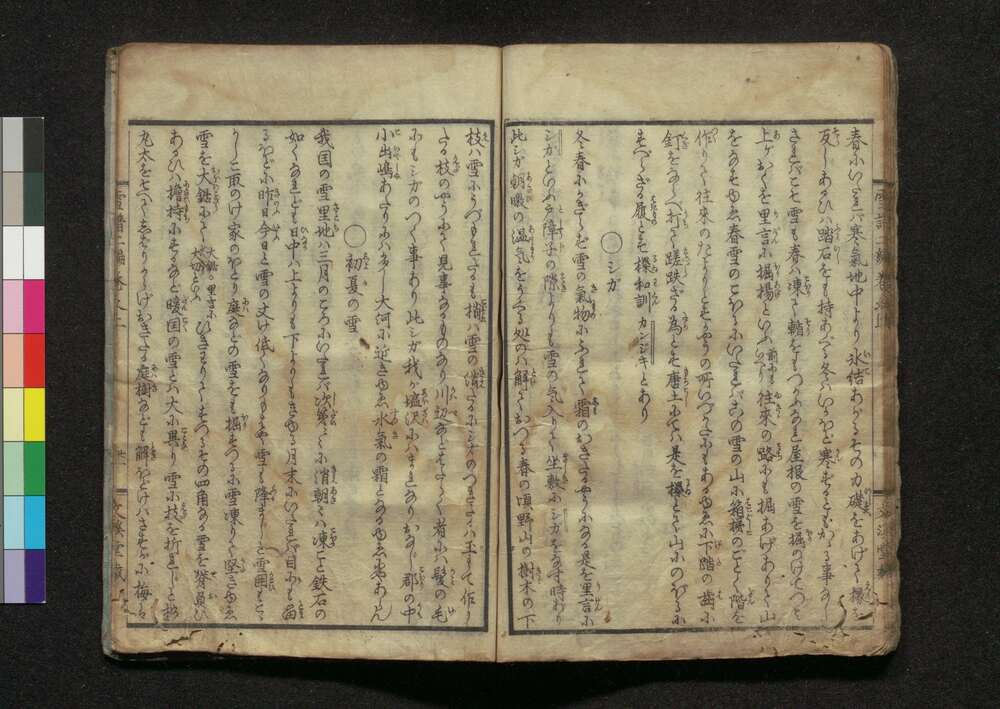 春にいたれば寒気地中より氷結あがるその力礎をあげて椽を
反らしあるひは踏石をも持あぐる冬はいかほど寒ずるともかゝる事なし
さればこそ雪も春は凍て轌をもつかふなれ屋根の雪を掘のけてつみ
上げおくを里言に掘揚といふ前にも往来の路にも掘あげありて山
をなすゆゑ春雪のこほるにいたればこの雪の山に箱梯のごとく階を
作りて往来のたよりとすかやうの所いづかたにもあるゆゑ下踏の歯に
釘をならべ打て蹉跌ざる為とす唐土にては是を欙とて山にのぼるに
すべらざる履とす欙和訓カンジキとあり
○シガ
冬春にかぎらず雪の気物にふれて霜のおきたるやうになる是を里言に
シガといふ戸障子の隙よりも雪の気入りて坐敷にシガをなす時あり
此シガ朝暾の温気をうくる処のは解ておつる春の頃野山の樹木の下
枝は雪にうづもれたるも梢は雪の消たるにシガのつきたるは玉もて作り
たる枝のやうにて見事なるものなり川辺などはたらく者には髪の毛
にもシガのつく事あり此シガ我が塩沢にはまれなりおなじ郡の中
小出嶋あたりには多し大河に近きゆゑ水気の霜となるゆゑにやあらん
○初夏の雪
我国の雪里地は三月のころにいたれば次第々々に消朝々は凍こと鉄石の
如くなれども日中は上よりも下よりもきゆる月末にいたれば目にも留
るほどに昨日今日と雪の丈け低くなりもはや雪も降まじと雪囲もこゝ
かしこ取のけ家のほとり庭などの雪をも掘すつるに雪凍りて堅きゆゑ
雪を大鋸にて 大鋸里言に大切といふ ひきわりてすつるその四角なる雪を脊負ひ
あるひは擔持にするなど暖国の雪とは大に異り雪に枝を折れじと杉
丸太をそへてしばりからげおきたる庭樹なども解ほどけばさすがに梅は
雪譜二編巻之二
文渓堂蔵